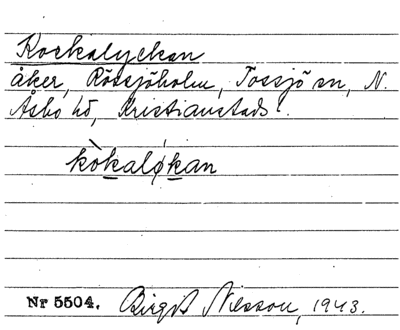 Kockalyckan
åker, Rössjöholm, Tossjö sn, N.
Åsbo hd, Kristianstads l.
kòkaløkan
Nr 5504. Birgit Nilsson, 1943.